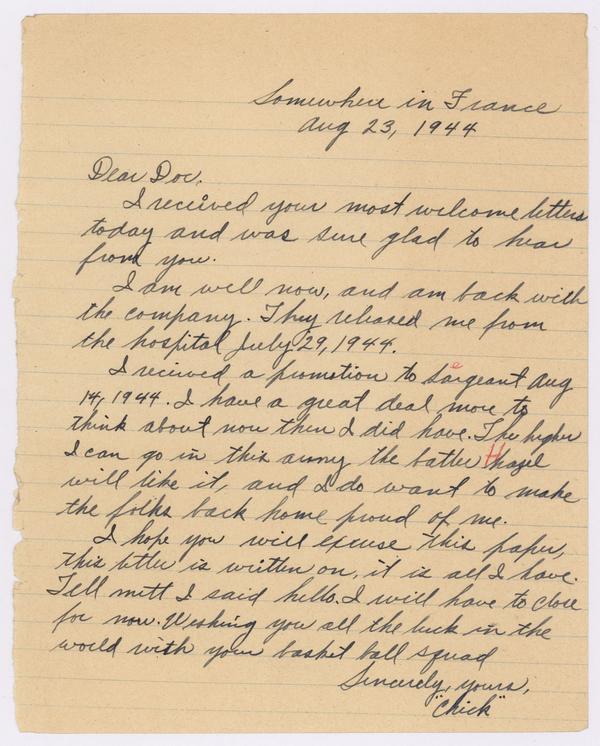 Somewhere in France
Aug 23, 1944
Dear Doc,
I received your most welcome letters
today and was sure glad to hear
from you.
I am well now, and am back with
the company. They released me from
the hospital July 29, 1944.
I received a promotion to Sargeant Aug
14, 1944. I have a great deal more to
think about now then I did have. The higher
I can go in this army the batter Hhazel
will like it, and I do want to make
the folks back home proud of me.
I hope you will excuse this paper,
this letter is written on, it is all I have.
Tell mitt I said hello. I will have to close
for now. Wishing you all the luck in the
world with your basket ball squad
Sincerely, yours,
"Chick"